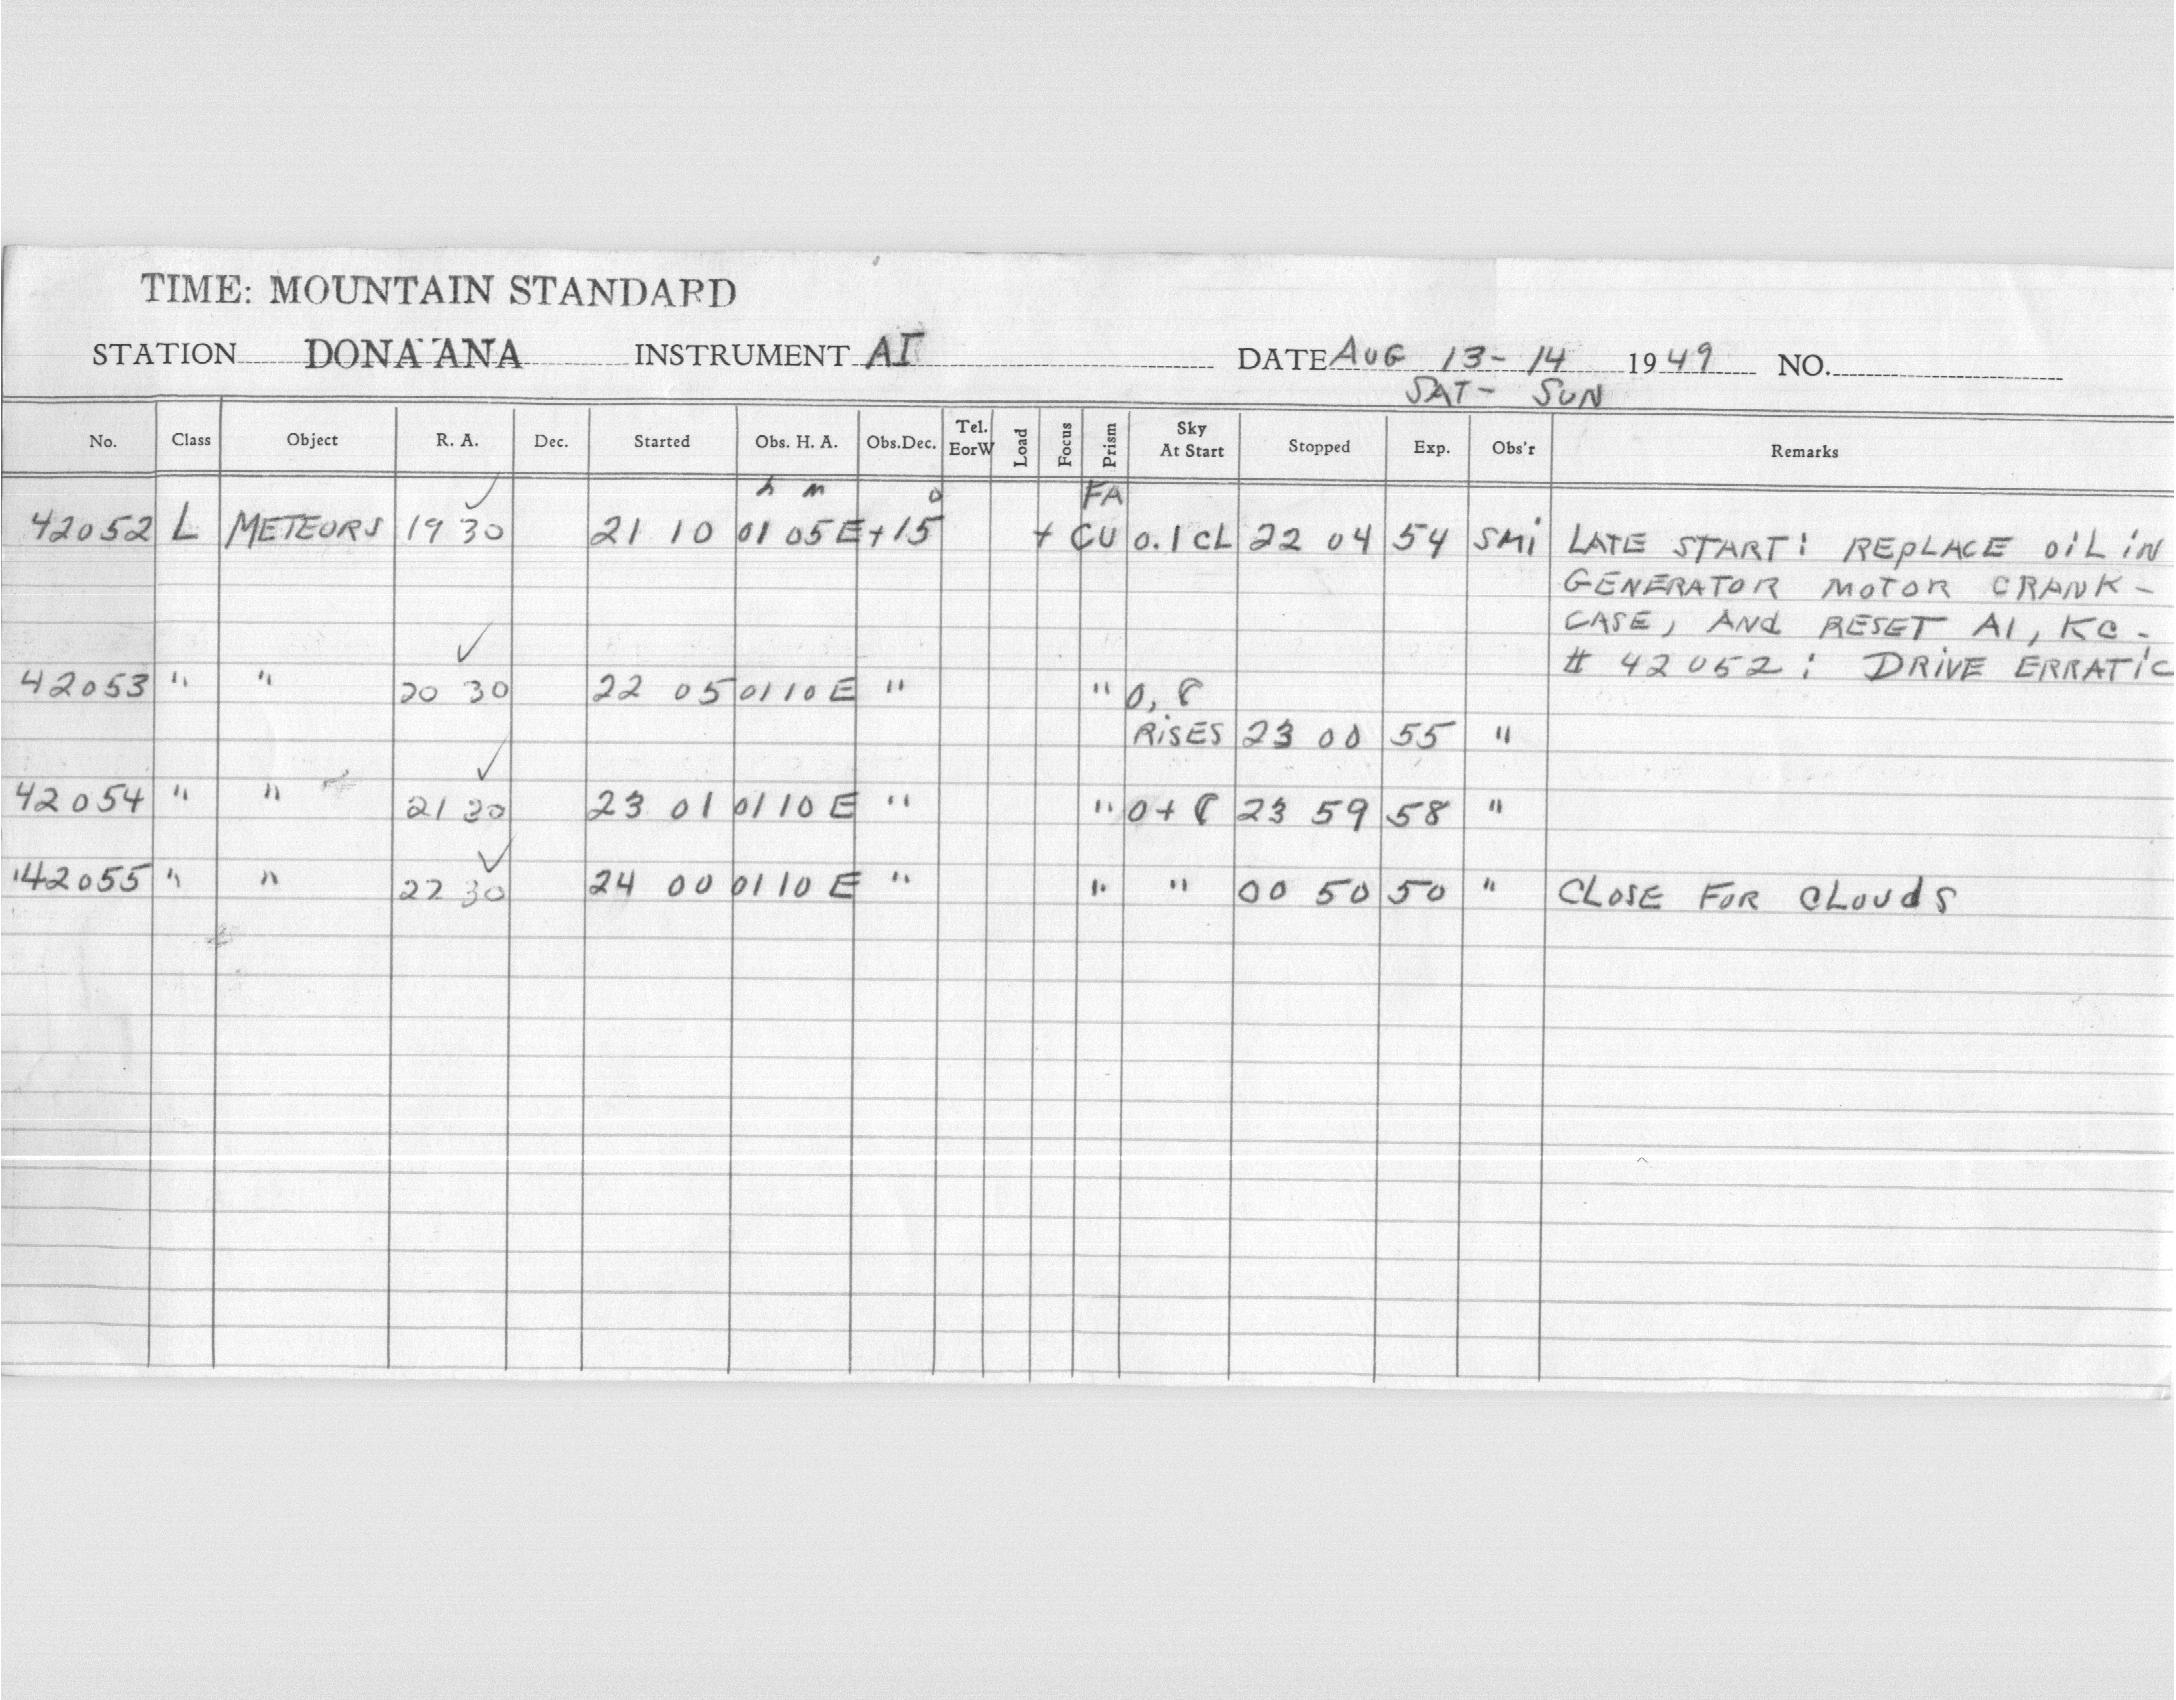 TIME: MOUNTAIN STANDARD
STATION DONA ANA INSTRUMENT AI DATE AUG 13-14 1949 NO.
SAT- SUN
No. Class Object R. A. Dec. Started Obs. H. A. Obs.Dec. Tel. EorW Load Focus Prism Sky At Start Stopped Exp. Obs'r Remarks
h m o FA
42052 L METEORS 19 30 21 10 01 05 E +15 + CU 0.1 CL 22 04 54 SMi LATE START: REPLACE OIL IN
GENERATOR MOTOR CRANK-
CASE, AND RESET AI, KC.
# 42052: DRIVE ERRATIC
42053 " " 20 30 22 05 01 10 E " " 0,
RISES 23 00 55 "
42054 " " 21 30 23 01 01 10 E " " 0+ 23 59 58 "
42055 " " 22 30 24 00 01 10 E " " " 00 50 50 " CLOSE FOR CLOUDS